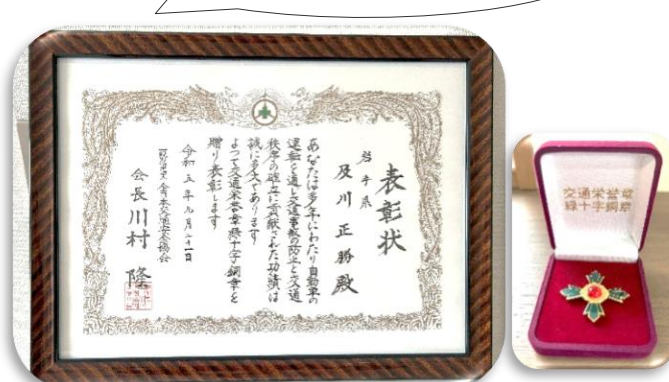 表彰状
岩手県
及川正勝殿
あなたは多年にわたり自動車の
運転を通じ交通事故の防止と交通
秩序の確立に貢献された功績は
誠に多大であります
よって交通栄誉章緑十字銅章を
贈り表彰します
令和五年九月二十一日
会長川村隆
交通栄誉章
緑十字銅章